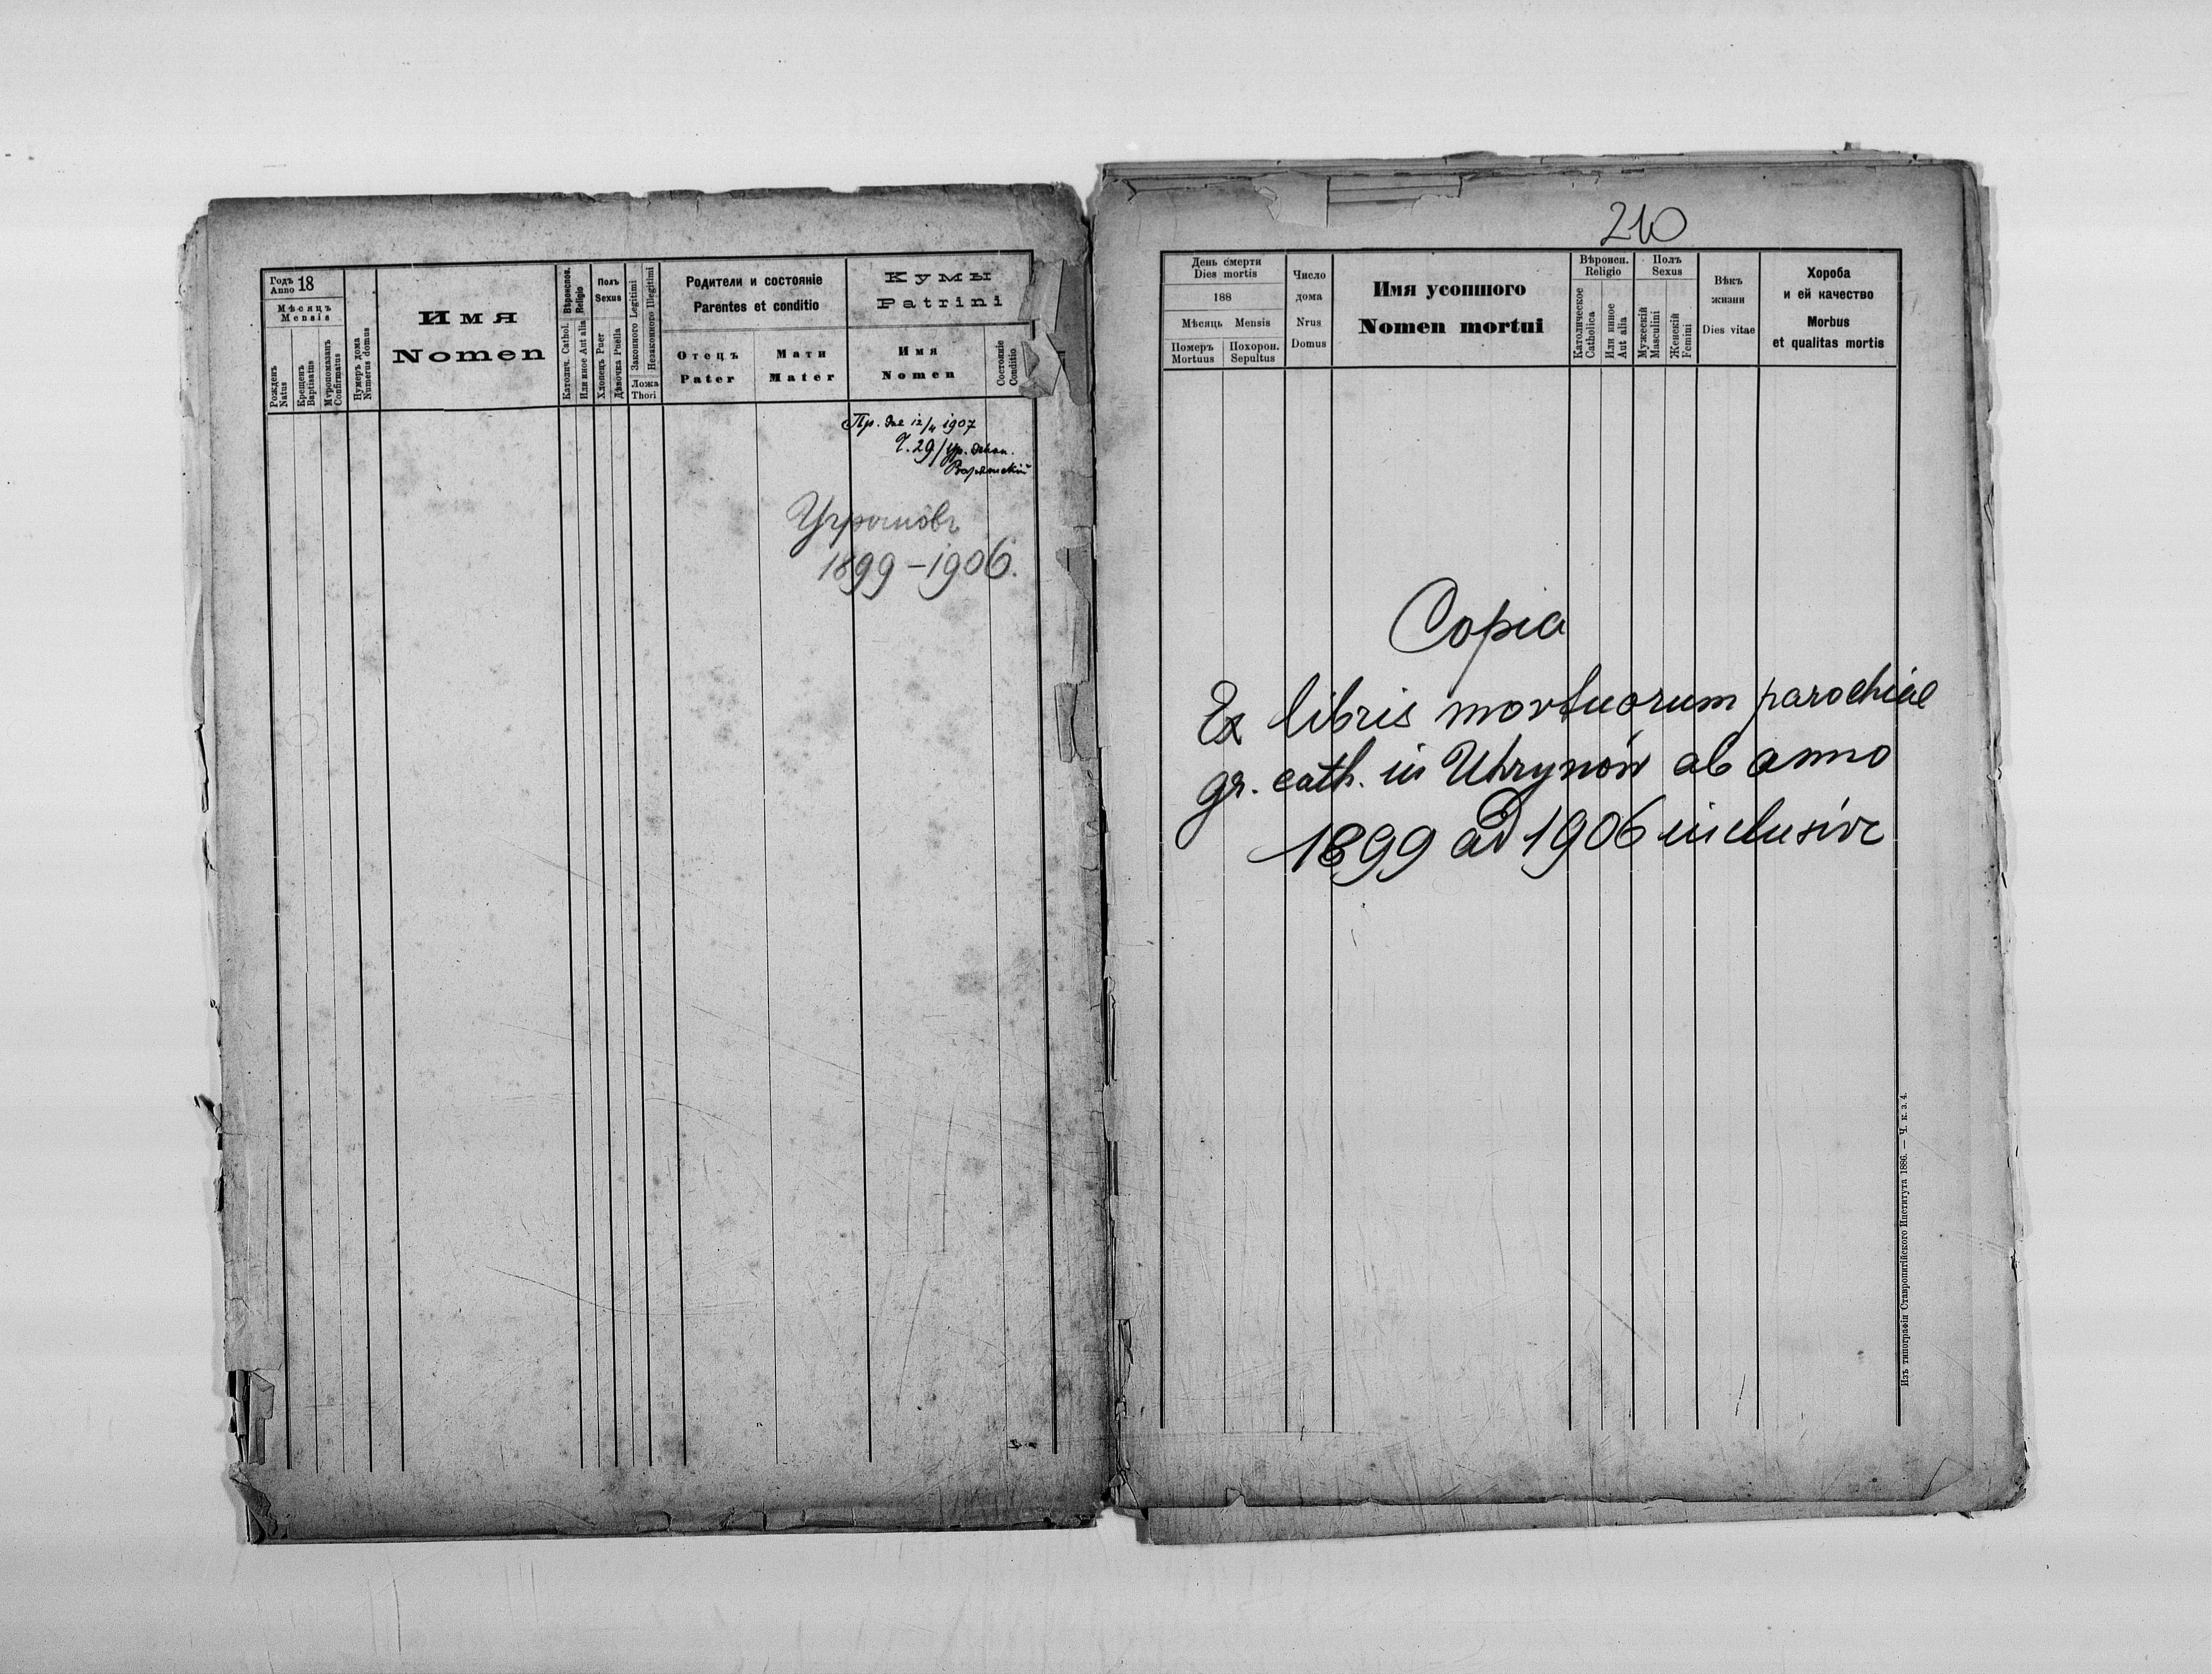 Годъ 18
Anno
Мѣсяцъ
Mensis
Рожденъ
Natus
Крещенъ
Baptisatus
Мѵропомазанъ
Confirmatus
Нумеръ дома
Numerus domus
Имя
Nomen
Вѣроиспов.
Religio
Католич. Cathol.
Или иное Aut alia
Полъ
Sexus
Хлопецъ Puer
Дѣвочка Puella
Законного Legitimi
Незаконного Illegitimi
Ложа
Thori
Родители и состояніе
Parentes et conditio
Отецъ
Pater
Мати
Mater
Кумы
Patrini
Имя
Nomen
Состояніе
Conditio
Пр. дне 12/4 1907
Ч. 29/
1899 – 1906.
210
День смерти
Dies mortis
188
Мѣсяць Mensis
Померъ
Mortuus
Похорон.
Sepultus
Число
дома
Nrus
Domus
Имя усопшого
Nomen mortui
Вѣроисп.
Religio
Католическое
Catholica
Или инное
Aut alia
Полъ
Sexus
Мужескій
Masculini
Женскій
Femini
Вѣкъ
жизни
Dies vitae
Хороба
и ей качество
Morbus
et qualitas mortis
Copia
Ex libris mortuorum parochiae
gr. cath. in Uhrynów ab anno
1899 ad 1906 inclusive
Изъ типографіи Ставропигійского Института 1886. — Ч. к. з. 4.